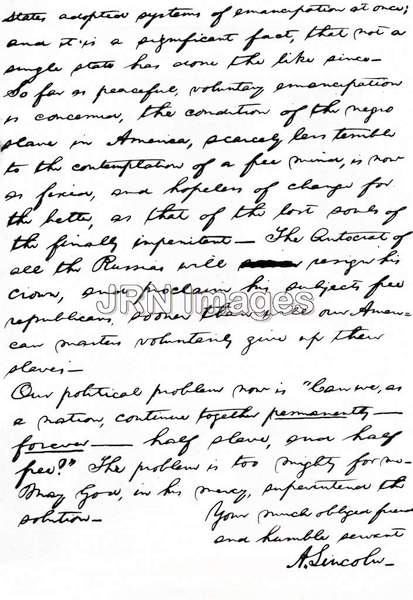 States adopted systems of emancipation at once;
and it is a significant fact, that not a
single state has done the like since—
So far as peaceful, voluntary emancipation
is concerned, the condition of the negro
slave in America, scarcely less terrible
to the contemplation of a free mind, is now
as fixed, and hopeless of change for
the better, as that of the lost souls of
the finally impenitent— The Autocrat of
all the Russias will resign his
crown, and proclaim his subjects free
republicans, sooner than will our Ameri-
can masters voluntarily give up their
slaves—
Our political problem now is "Can we, as
a nation, continue together permanently—
forever— half slave, and half
free?" The problem is too mighty for me—
May God, in his mercy, superintend the
solution—
Your much obliged friend
and humble servant
A. Lincoln—
JRN Images